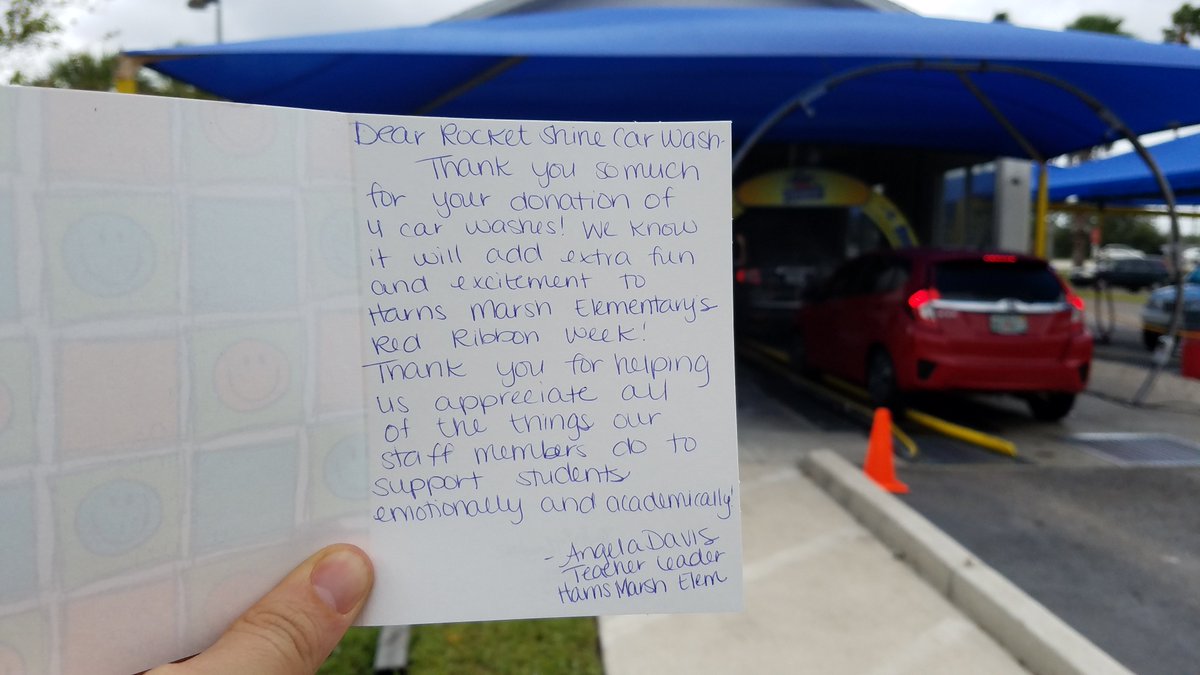 Dear Rocket Shine Car Wash-
Thank you so much
for your donation of
4 car washes! We know
it will add extra fun
and excitement to
Harns Marsh Elementary's
Red Ribbon Week!
Thank you for helping
us appreciate all
of the things our
staff members do to
support students
emotionally and academically!
- Angela Davis
Teacher Leader
Harns Marsh Elem